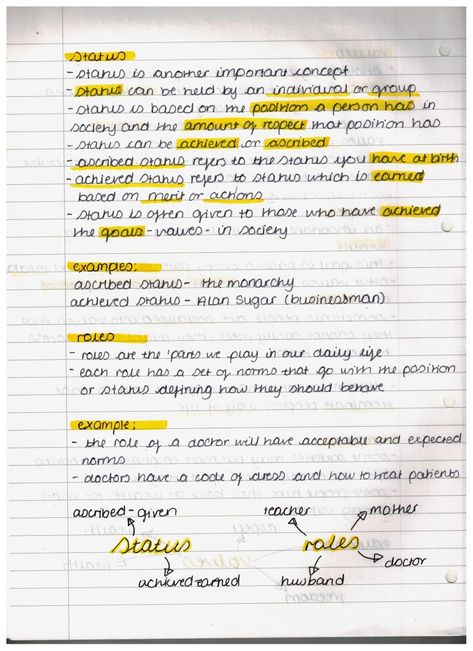 status
- status is another important concept
- status can be held by an individual or group
- status is based on the position a person has in
society and the amount of respect that position has
- status can be achieved or ascribed
- ascribed status refers to the status you have at birth
- achieved status refers to status which is earned
based on merit or actions
- status is often given to those who have achieved
the goals - values - in society
examples:
ascribed status - the monarchy
achieved status - Alan Sugar (businessman)
roles
- roles are the 'parts we play in our daily life
- each role has a set of norms that go with the position
or status defining how they should behave
example:
- the role of a doctor will have acceptable and expected
norms
- doctors have a code of dress and how to treat patients
ascribed - given
teacher
mother
status
roles
doctor
achieved earned
husband